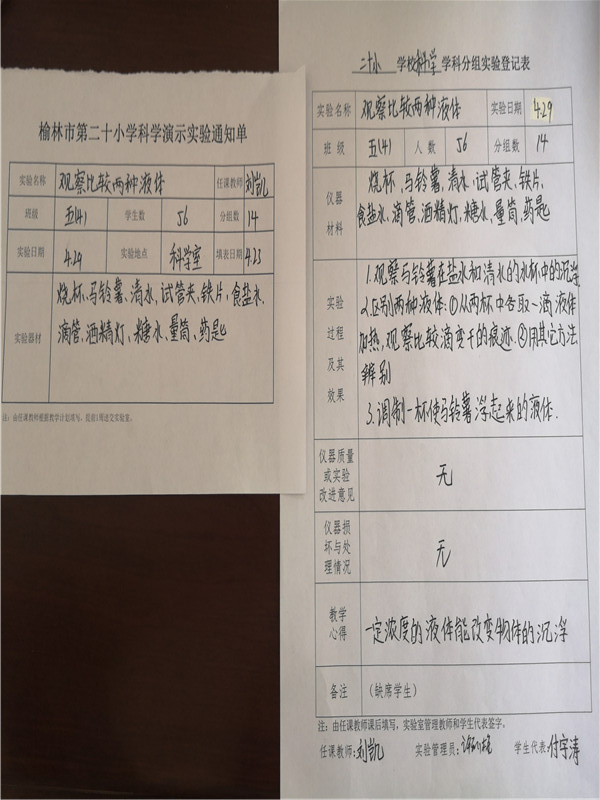 榆林市第二十小学科学演示实验通知单
实验名称 观察比较两种液体 任课教师 刘凯
班级 五(4) 学生数 56 分组数 14
实验日期 4.29 实验地点 科学室 填表日期 4.23
实验器材 烧杯、马铃薯、清水、试管夹、铁片、食盐水、
滴管、酒精灯、糖水、量筒、药匙
注：由任课教师根据教学计划填写，提前1周送交实验室。
二十小 学校 科学 学科分组实验登记表
实验名称 观察比较两种液体 实验日期 4.29
班 级 五(4) 人 数 56 分组数 14
仪器
材料
烧杯、马铃薯、清水、试管夹、铁片、
食盐水、滴管、酒精灯、糖水、量筒、药匙
实验
过程
及其
效果
1.观察马铃薯在盐水和清水的水杯中的沉浮
2.区别两种液体:①从两杯中各取一滴液体
加热,观察比较滴变干的痕迹.②用其它方法
辨别
3.调制一杯使马铃薯浮起来的液体.
仪器质量
或实验
改进意见
无
仪器损
坏与处
理情况
无
教学
心得
一定浓度的液体能改变物体的沉浮
备注 （缺席学生）
注：由任课教师课后填写，实验室管理教师和学生代表签字。
任课教师:刘凯 实验管理员: 学生代表:付宇涛